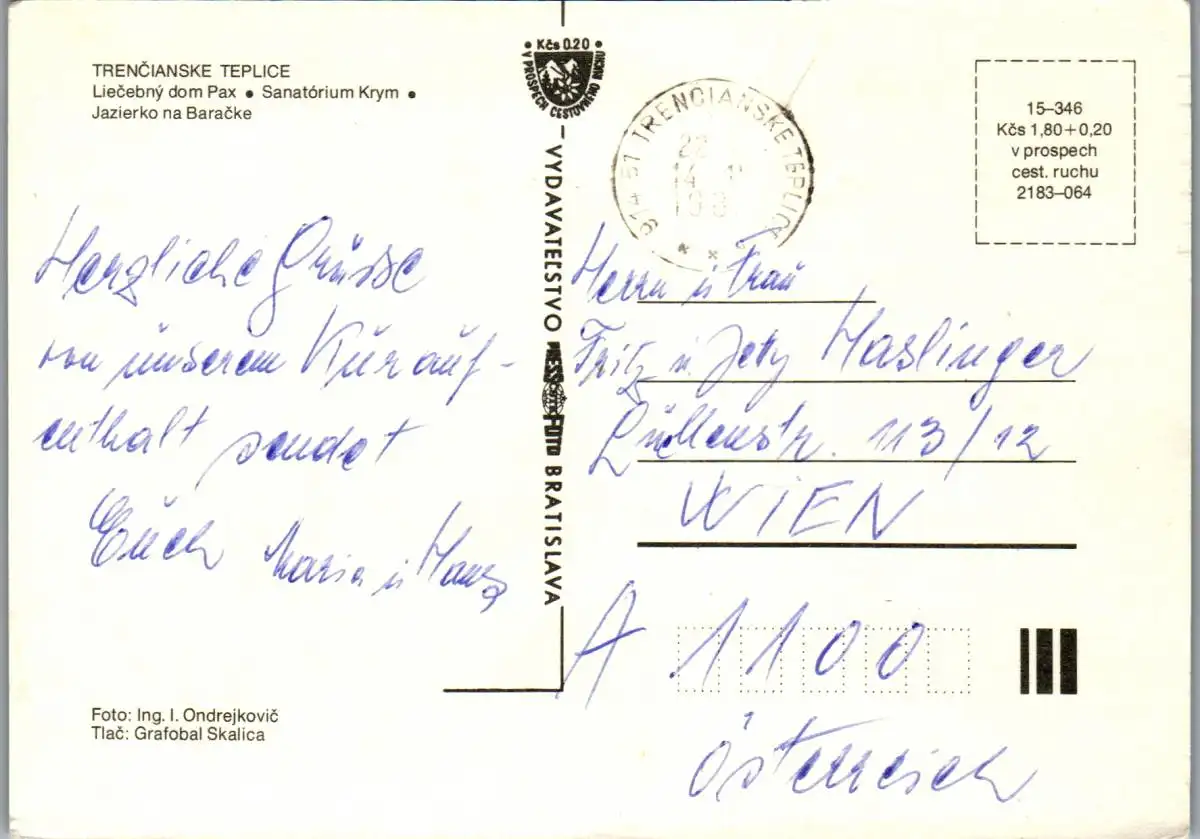 TRENČIANSKE TEPLICE
Liečebný dom Pax ● Sanatórium Krym ●
Jazierko na Baračke
Herzliche Grüsse
von unserem Kurauf-
enthalt sendet
Euch Maria u Hans
Foto: Ing. I. Ondrejkovič
Tlač: Grafobal Skalica
Kčs 0.20
V PROSPECH CESTOVNÉHO RUCHU
VYDAVATEĽSTVO PRESSFOTO BRATISLAVA
914 51 TRENČIANSKE TEPLICE
15–346
Kčs 1,80+0,20
v prospech
cest. ruchu
2183–064
Herrn u Frau
Fritz u. Jety Haslinger
113/12
WIEN
A 1100
Österreich